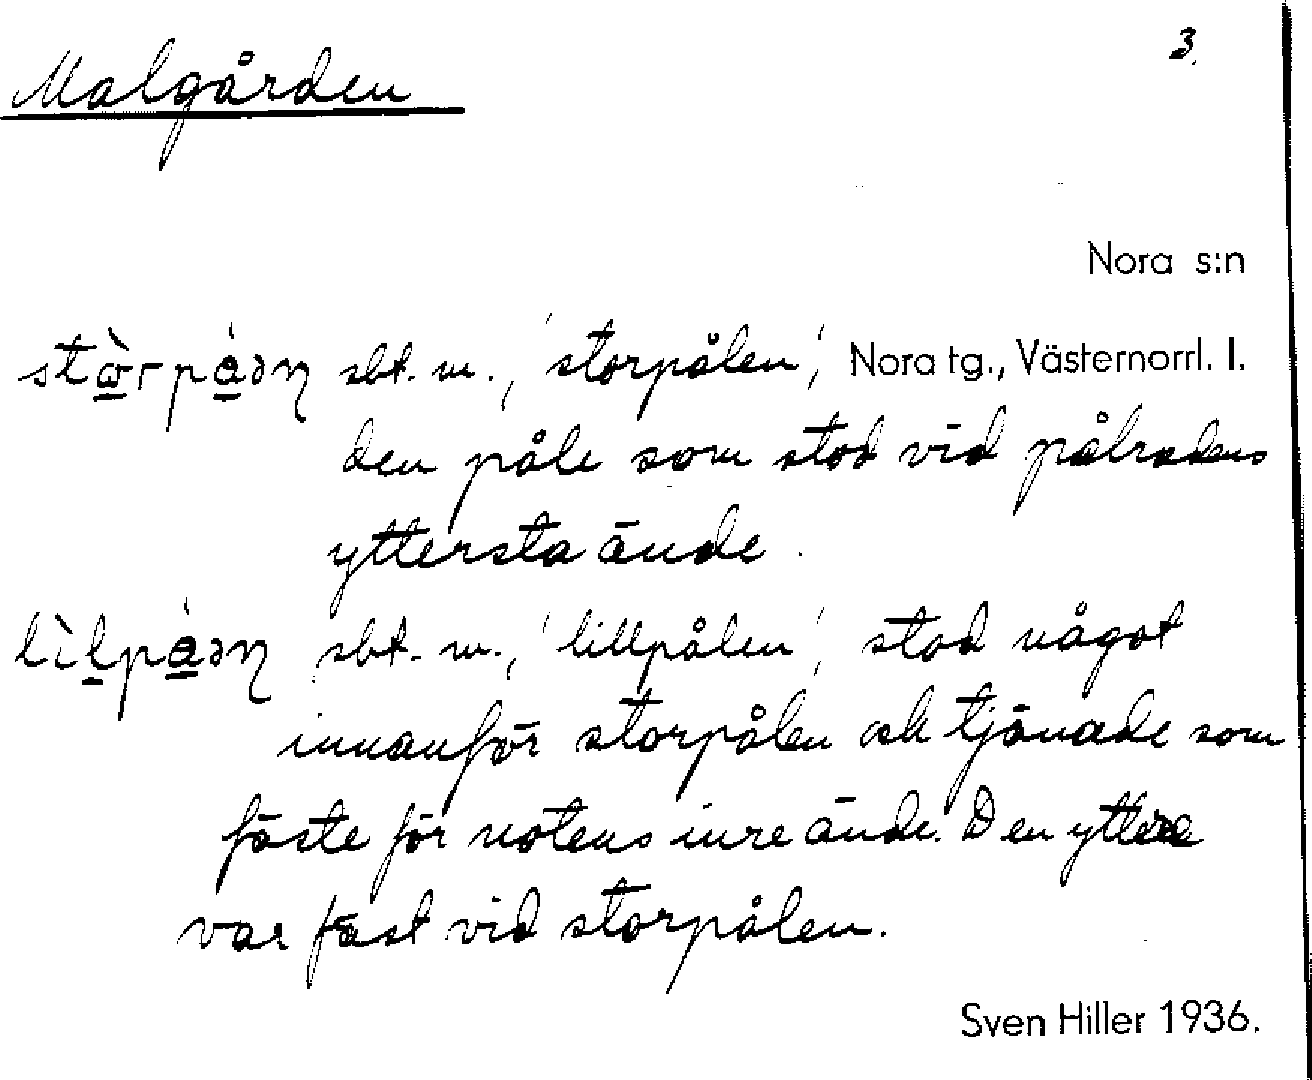 3.
Malgården
Nora s:n
stò̱rpá̱əη sbt. m., 'storpålen', Nora tg., Västernorrl. l.
den påle som stod vid pålradens
yttersta ände.
lìḻpá̱əη sbt. m., 'lillpålen', stod något
innanför storpålen och tjänade som
fäste för notens inre ände. Den yttere
var fäst vid storpålen.
Sven Hiller 1936.